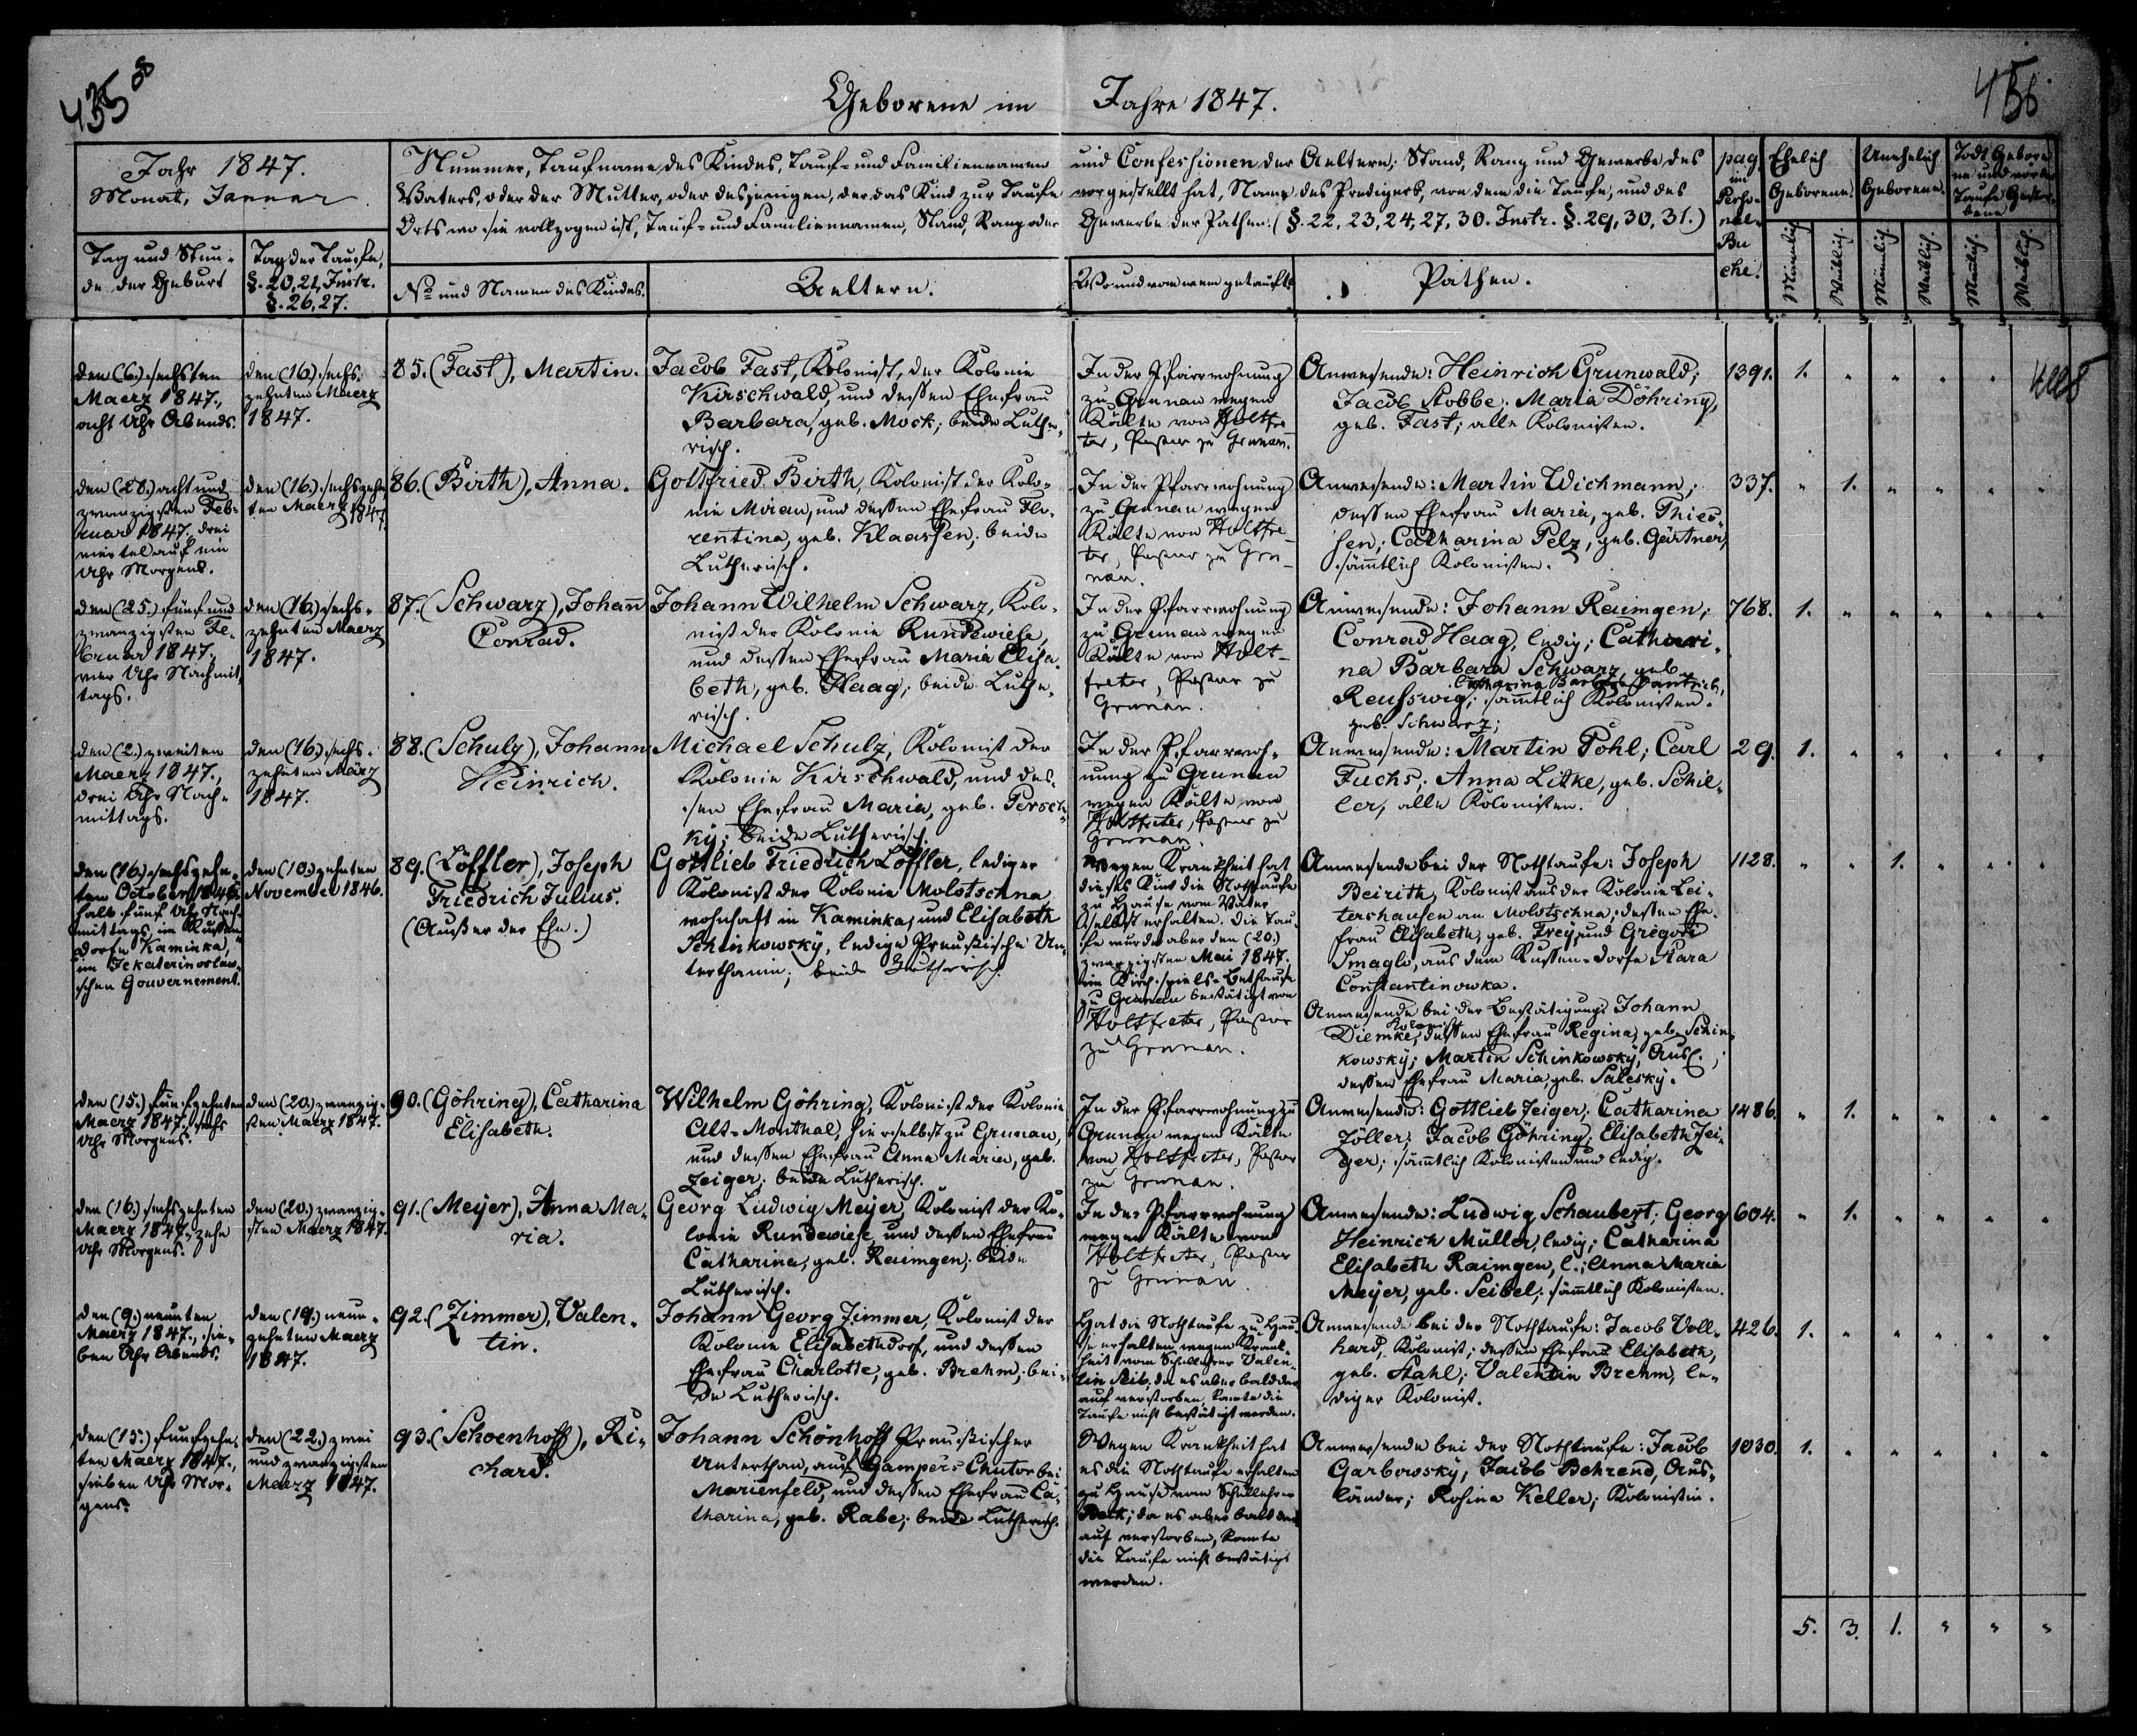 435
08
456
Geborene im Jahre 1847.
Jahr 1847.
Monat, Januar
Tag und Stun-
de der Geburt
Tag der Taufe,
§. 20, 21, Instr.
§. 26, 27.
Nummer, Taufname des Kindes, Tauf- und Familiennamen und Confessionen der Aeltern; Stand, Rang und Gewerbe des
Vaters, oder der Mutter, oder desjenigen, der das Kind zur Taufe vorgestellt hat, Name des Predigers, von dem die Taufe, und des
Orts wo sie vollzogen ist, Tauf- und Familiennamen, Stand, Rang oder Gewerbe der Pathen. (§. 22, 23, 24, 27, 30. Instr. §. 29, 30, 31.)
No und Namen des Kindes.
Aeltern.
Wo und von wem getauft.
Pathen.
pag.
im
Perso-
nal-
Bu
che.
Ehelich
Geborene.
Unehelich
Geborene.
Todt Gebore-
ne und vor der
Taufe Gestor-
bene
Männlich.
Weiblich.
Männlich.
Weiblich.
Männlich.
Weiblich.
den (6.) sechsten
Maerz 1847.,
acht Uhr Abends.
den (16.) sechs-
zehnten Maerz
1847.
85. (Fast), Martin.
Jacob Fast, Kolonist, der Kolonie
Kirschwald, und dessen Ehefrau
Barbara, geb. Mock; beide Luthe-
risch.
In der Pfarrwohnung
zu Grunau wegen
Kälte von Holtfre-
ter, Pastor zu Grunau.
Anwesende: Heinrich Grunwald;
Jacob Stobbe. Maria Döhring,
geb. Fast; alle Kolonisten.
1391. 1. " " " " "
den (28.) acht und
zwanzigsten Feb-
ruar 1847., drei
viertel auf ein
Uhr Morgens.
den (16.) sechszehn
ten Maerz 1847.
86. (Birth), Anna.
Gottfried Birth, Kolonist der Kolo-
nie Mirau, und dessen Ehefrau Flo-
rentina, geb. Klaassen; beide
Lutherisch.
In der Pfarrwohnung
zu Grunau wegen
Kälte von Holtfre-
ter, Pastor zu Gru-
nau.
Anwesende: Martin Wichmann;
dessen Ehefrau Maria, geb. Thies-
sen; Catharina Pelz, geb. Gärtner,
sämtlich Kolonisten.
337. " 1. " " " "
den (25.) fünf und
zwanzigsten Fe-
bruar 1847.,
vier Uhr Nachmit-
tags.
den (16.) sechs-
zehnten Maerz
1847.
87. (Schwarz), Johann
Conrad.
Johann Wilhelm Schwarz, Kolo-
nist der Kolonie Rundewiese,
und dessen Ehefrau Maria Elisa-
beth, geb. Haag; beide Luthe-
risch.
In der Pfarrwohnung
zu Grunau wegen
Kälte von Holt-
freter, Pastor zu
Grunau.
Anwesende: Johann Raimgen;
Conrad Haag, ledig; Cathari-
na Barbara Schwarz geb.
Catharina Barbara
Reusswig; sämtlich Kolonisten.
geb. Schwarz;
768. 1. " " " " "
den (2.) zweiten
Maerz 1847.,
drei Uhr Nach-
mittags.
den (16.) sechs-
zehnten März
1847.
88. (Schulz), Johann
Heinrich.
Michael Schulz, Kolonist der
Kolonie Kirschwald, und des-
sen Ehefrau Maria, geb. Persch-
ky; beide Lutherisch.
In der Pfarrwoh-
nung zu Grunau
wegen Kälte von
Holtfreter, Pastor zu
Grunau.
Anwesende: Martin Pohl; Carl
Fuchs; Anna Litke, geb. Schil-
ler, alle Kolonisten.
29. 1. " " " " "
den (16.) sechszehn-
ten October 1846.
halb fünf Uhr Nach-
mittags im Russen-
Dorfe Kaminka,
im Jekaterinoslaw-
schen Gouvernement.
den (10.) zehnten
November 1846.
89. (Löffler), Joseph
Friedrich Julius.
(Außer der Ehe.)
Gottlieb Friedrich Löffler, lediger
Kolonist der Kolonie Molotschna
wohnhaft in Kaminka, und Elisabeth
Schinkowsky, ledige Preussische Un-
terthanin; beide Lutherisch.
Wegen Krankheit hat
dieses Kind die Nothtaufe
zu Hause vom Vater
selbst erhalten. Die Tau-
fe wurde aber den (20.)
zwanzigsten Mai 1847.
im Kirchspiels-Bethause
zu Grunau bestätigt von
Holtfreter, Pastor
zu Grunau.
Anwesende bei der Nothtaufe: Joseph
Beirith, Kolonist aus der Kolonie Lei-
tershausen an Molotschna; dessen Ehe-
frau Elisabeth, geb. Frey; und Gregori
Smaglo, aus dem Russen-Dorfe Stara
Constantinowka.
Anwesende bei der Bestätigung: Johann
Kolonist
Diemke, dessen Ehefrau Regina, geb. Schin-
kowsky; Martin Schinkowsky, Ausl.;
dessen Ehefrau Maria, geb. Salesky.
1128. " " 1. " " "
den (15.) fünfzehnten
Maerz 1847. sechs
Uhr Morgens.
den (20.) zwanzig-
sten Maerz 1847.
90. (Göhring), Catharina
Elisabeth.
Wilhelm Göhring, Kolonist der Kolonie
Alt-Monthal, hierselbst zu Grunau,
und dessen Ehefrau Anna Maria, geb.
Zeiger; beide Lutherisch.
In der Pfarrwohnung zu
Grunau wegen Kälte
von Holtfreter, Pastor
zu Grunau.
Anwesende: Gottlieb Zeiger; Catharina
Zöller; Jacob Göhring; Elisabeth Zei-
ger; sämtlich Kolonisten und ledig.
1486. " 1. " " " "
den (16.) sechszehnten
Maerz 1847., zehn
Uhr Morgens.
den (20.) zwanzig-
sten Maerz 1847.
91. (Meyer), Anna Ma-
ria.
Georg Ludwig Meyer, Kolonist der Ko-
lonie Rundewiese, und dessen Ehefrau
Catharina, geb. Raimgen; beide
Lutherisch.
In der Pfarrwohnung
wegen Kälte von
Holtfreter, Pastor
zu Grunau
Anwesende: Ludwig Schaubert; Georg
Heinrich Müller, ledig; Catharina
Elisabeth Raimgen, l.; Anna Maria
Meyer, geb. Seibel; sämtlich Kolonisten.
604. " 1. " " " "
den (9.) neunten
Maerz 1847., sie-
ben Uhr Abends.
den (19.) neun-
zehnten Maerz
1847.
92. (Zimmer), Valen-
tin.
Johann Georg Zimmer, Kolonist der
Kolonie Elisabethdorf, und dessen
Ehefrau Charlotte, geb. Brehm; bei-
de Lutherisch.
Hat die Nothtaufe zu Hau-
se erhalten wegen Krank-
heit vom Schullehrer Valen-
tin Seib; da es aber bald dar-
auf verstorben, konnte die
Taufe nicht bestätigt werden.
Anwesende bei der Nothtaufe: Jacob Voll-
hard, Kolonist; dessen Ehefrau Elisabeth,
geb. Stahl; Valentin Brehm, le-
diger Kolonist.
426. 1. " " " " "
den (15.) fünfzehn-
ten Maerz 1847.,
sieben Uhr Mor-
gens.
den (22.) zwei
und zwanzigsten
Maerz 1847.
93. (Schoenhoff), Ri-
chard.
Johann Schönhoff Preussischer
Unterthan, auf Gampers Chutor bei
Marienfeld, und dessen Ehefrau Ca-
tharina, geb. Rabe; beide Lutherisch.
Wegen Krankheit hat
es die Nothtaufe erhalten
zu Hause vom Schullehrer
Beck; da es aber bald dar-
auf verstorben, konnte
die Taufe nicht bestätigt
werden.
Anwesende bei der Nothtaufe: Jacob
Garbowsky, Jacob Behrend, Aus-
länder; Rosina Keller, Kolonistin.
1030. 1. " " " " "
5. 3. 1. " " "